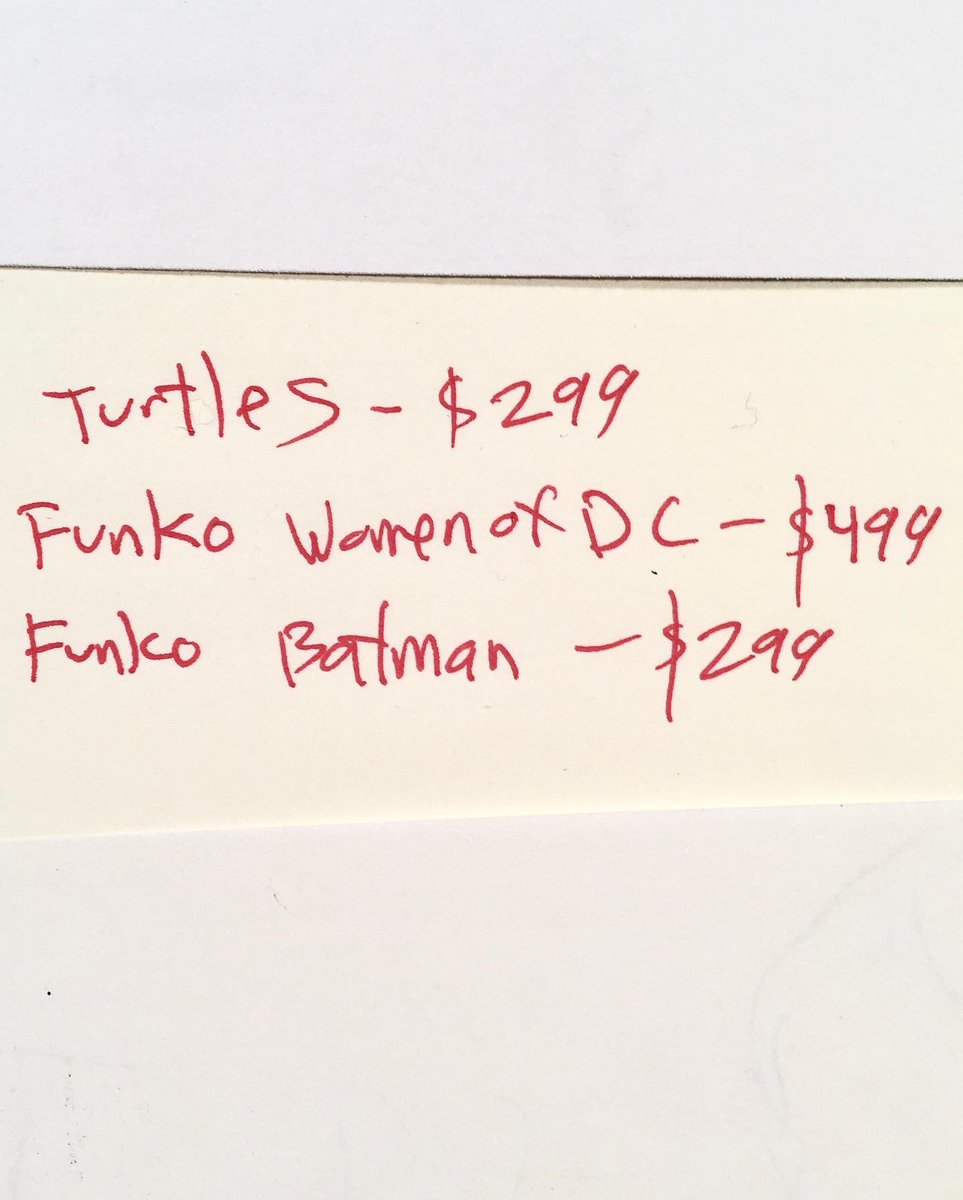 Turtles - $299
Funko Women of DC - $499
Funko Batman - $299